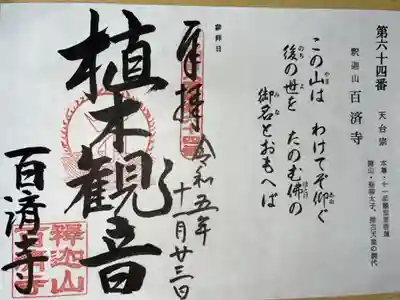 第六十四番 天台宗
釈迦山 百済寺
本尊・十一面観世音菩薩
開山・聖徳太子、推古天皇の御代
この山は わけてぞ仰ぐ
後の世を たのむ佛の
御名とおもへば
参拝日
奉拝
令和五年
十一月廿三日
植木観音
百済寺
釋迦山
百済寺